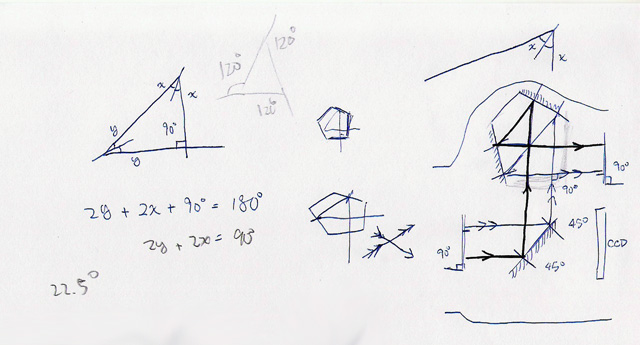 x
x
y
90°
y
120°
120°
120°
2y + 2x + 90° = 180°
2y + 2x = 90°
22.5°
x
x
90°
90°
45°
90°
45°
CCD